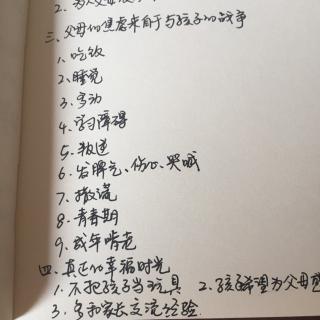 2. 为父母
三、父母的焦虑来自于与孩子的战争
1、吃饭
2、睡觉
3、多动
4、学习障碍
5、叛逆
6、发脾气、伤心、哭喊
7、撒谎
8、青春期
9、成年啃老
四、真正的幸福时光
1、不把孩子当玩具 2、孩子希望为父母
3、多和家长交流经验.